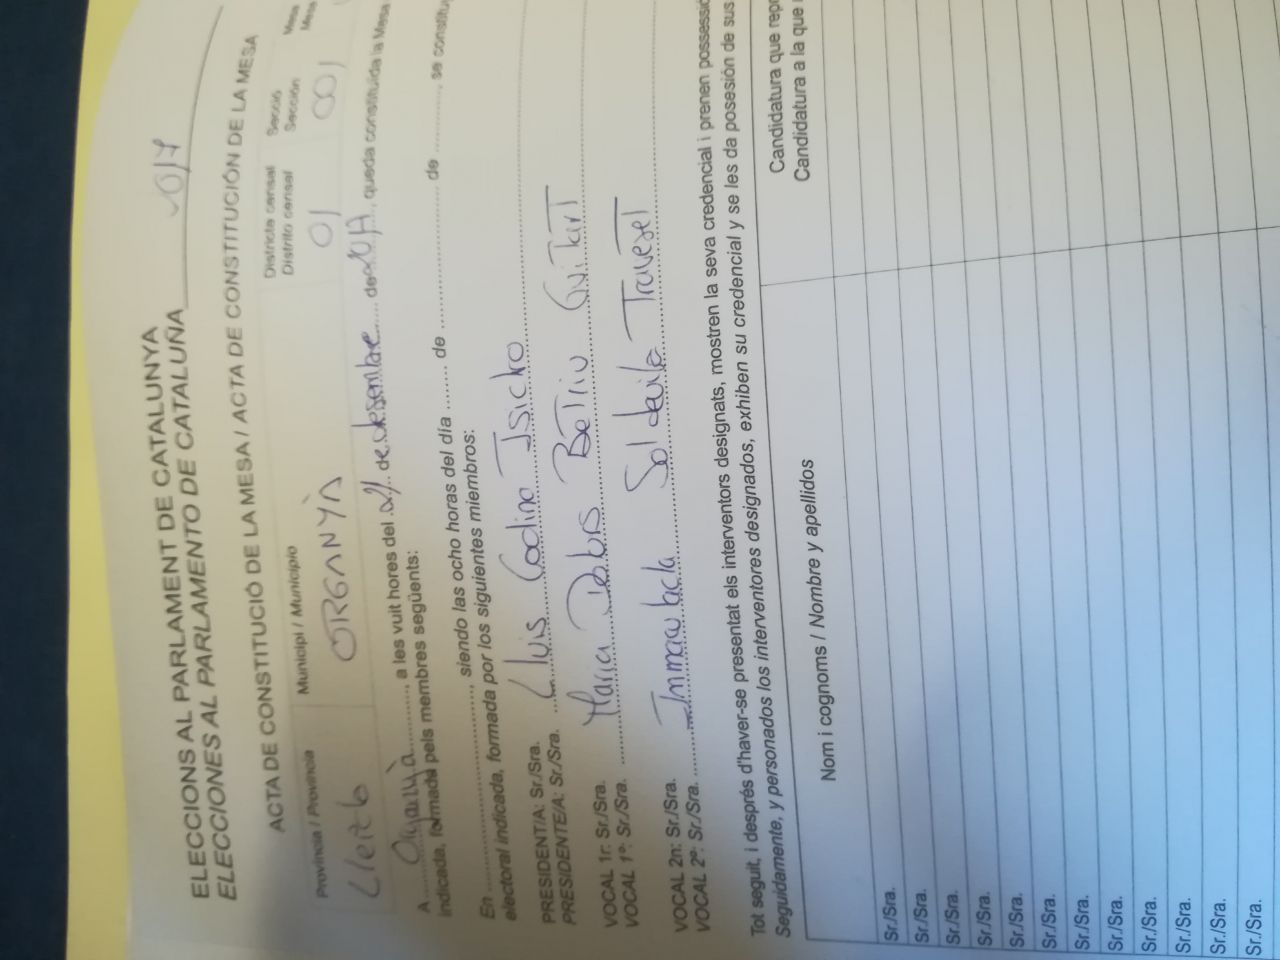 ELECCIONS AL PARLAMENT DE CATALUNYA
ELECCIONES AL PARLAMENTO DE CATALUÑA 2017
ACTA DE CONSTITUCIÓ DE LA MESA / ACTA DE CONSTITUCIÓN DE LA MESA
Província / Provincia Municipi / Municipio Districte censal Secció Mesa
Distrito censal Sección Mesa
Lleida ORGANYÀ 01 001
A Organyà, a les vuit hores del 21 de desembre de 2017, queda constituïda la Mesa
indicada, formada pels membres següents:
En, siendo las ocho horas del día de de, se constituy
electoral indicada, formada por los siguientes miembros:
PRESIDENT/A: Sr./Sra. Lluis Codina Isicho
PRESIDENTE/A: Sr./Sra.
VOCAL 1r: Sr./Sra. Maria Dolors Betriu Guitart
VOCAL 1º: Sr./Sra.
VOCAL 2n: Sr./Sra. Immaculada Soldevila Traveset
VOCAL 2º: Sr./Sra.
Tot seguit, i després d'haver-se presentat els interventors designats, mostren la seva credencial i prenen possessió
Seguidamente, y personados los interventores designados, exhiben su credencial y se les da posesión de sus
Nom i cognoms / Nombre y apellidos
Candidatura que repr
Candidatura a la que
Sr./Sra.
Sr./Sra.
Sr./Sra.
Sr./Sra.
Sr./Sra.
Sr./Sra.
Sr./Sra.
Sr./Sra.
Sr./Sra.
Sr./Sra.
Sr./Sra.
Sr./Sra.